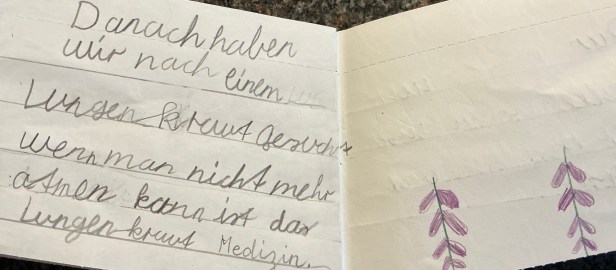 Danach haben
wir nach einem
Lungenkraut gesucht
wenn man nicht mehr
atmen kann ist das
Lungenkraut Medizin.